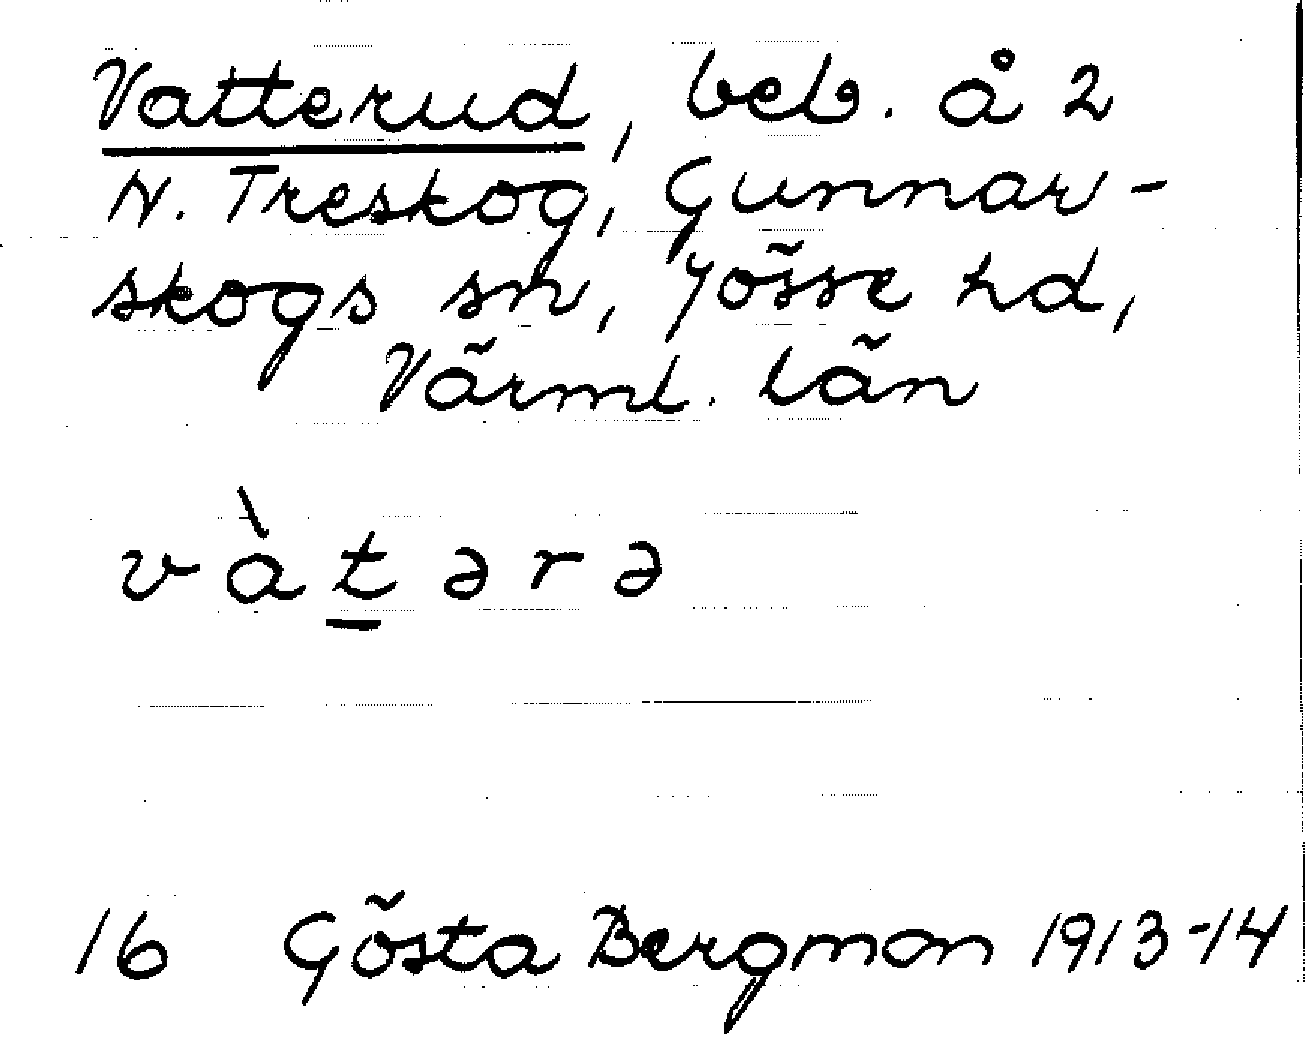 Vatterud, beb. å 2
N. Treskog, Gunnar-
skogs sn, Jösse hd,
Värml. län
v à t̲ ə r ə
16 Gösta Bergman 1913-14